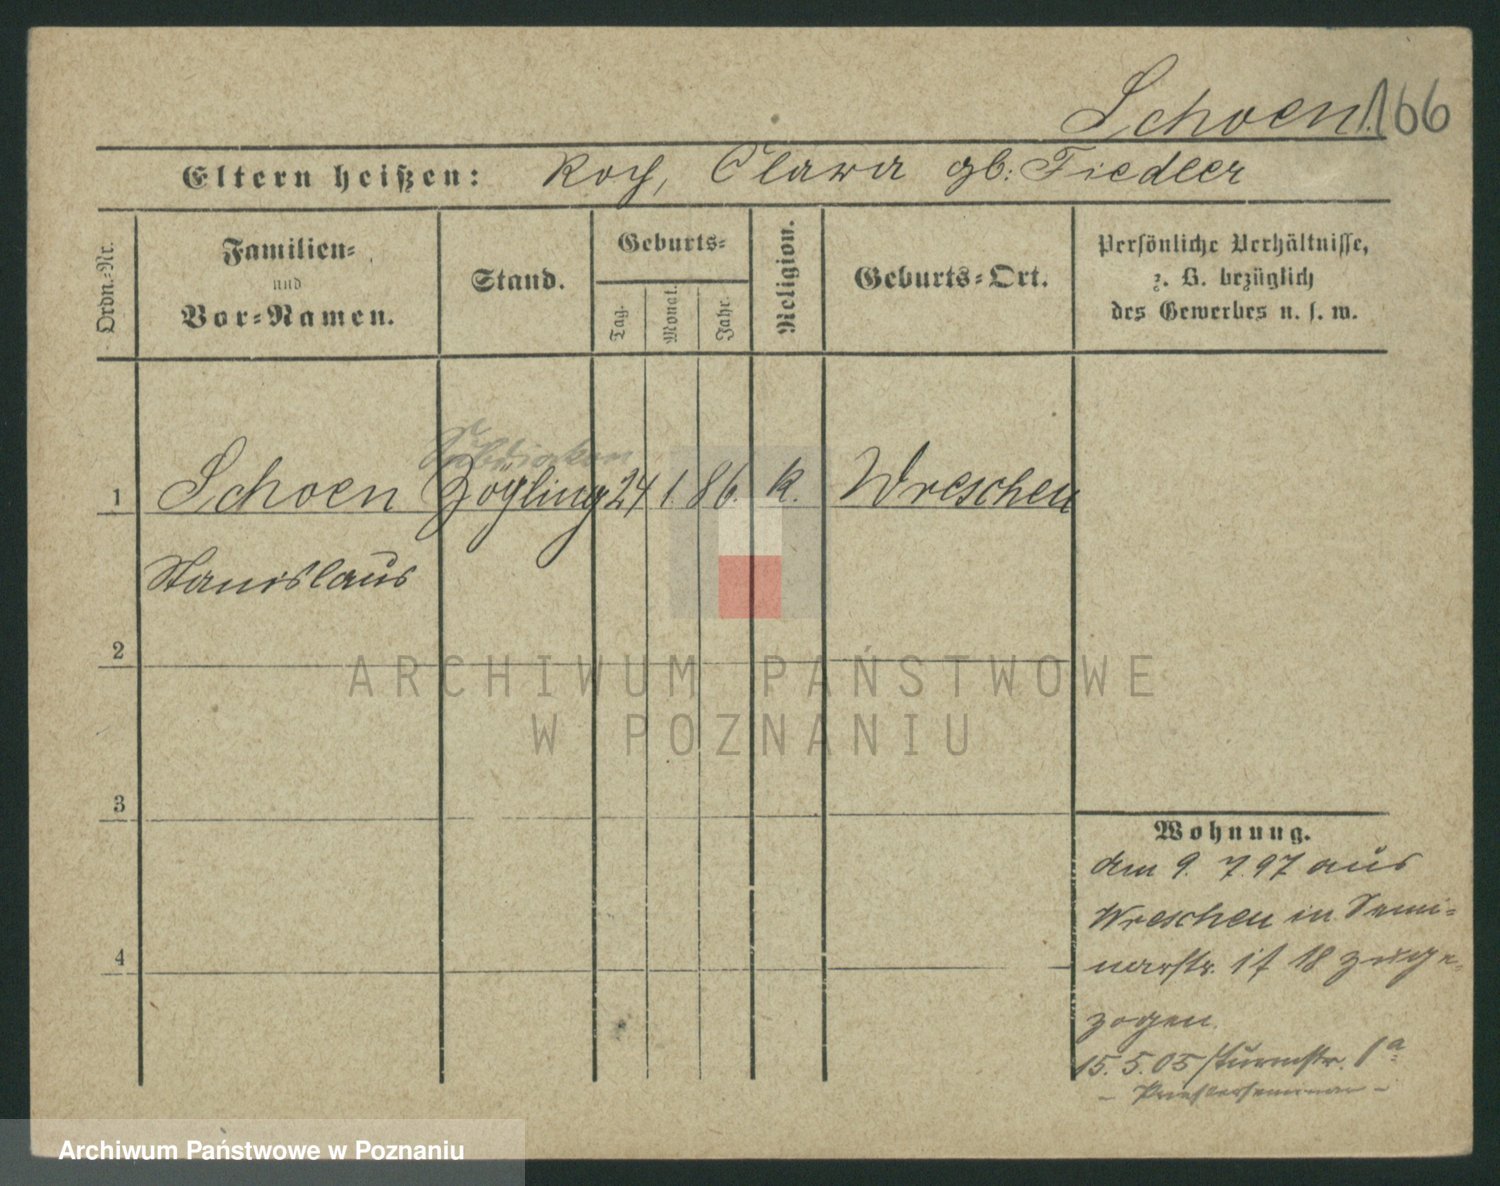 Schoen 166
Eltern heißen: Roch, Clara gb: Fiedler
Ordn.-Nr.
Familien-
und
Vor-Namen.
Stand.
Geburts-
Tag.
Monat.
Jahr.
Religion.
Geburts-Ort.
Persönliche Verhältnisse,
z. B. bezüglich
des Gewerbes u. s. w.
1 Schoen Zögling 24 1. 86. k. Wreschen
Stanislaus
2
ARCHIWUM PAŃSTWOWE
W POZNANIU
3
4
Wohnung.
am 9. 7. 97 aus
Wreschen in Semi-
narstr. 17 18 zuge-
zogen.
15. 5. 05 Turmstr. 1a
- Priesterseminar -
Archiwum Państwowe w Poznaniu